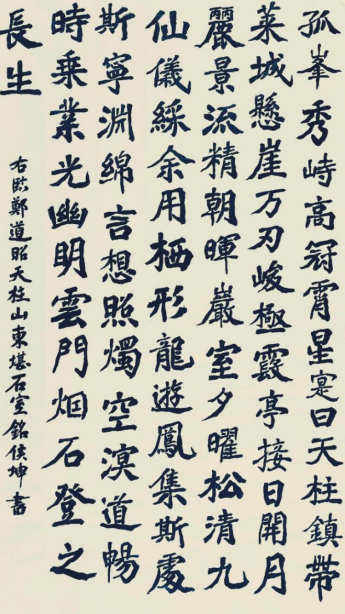 孤峯秀峙高冠霄星寔曰天柱鎮帶
萊城懸崖万刃峻極霞亭接日開月
麗景流精朝暉巖室夕曜松清九
仙儀綵余用栖形龍遊鳳集斯處
斯寧淵綿言想照燭空溟道暢
時乗業光幽明雲門烟石登之
長生
右臨鄭道昭天柱山東堪石室銘侯坤書